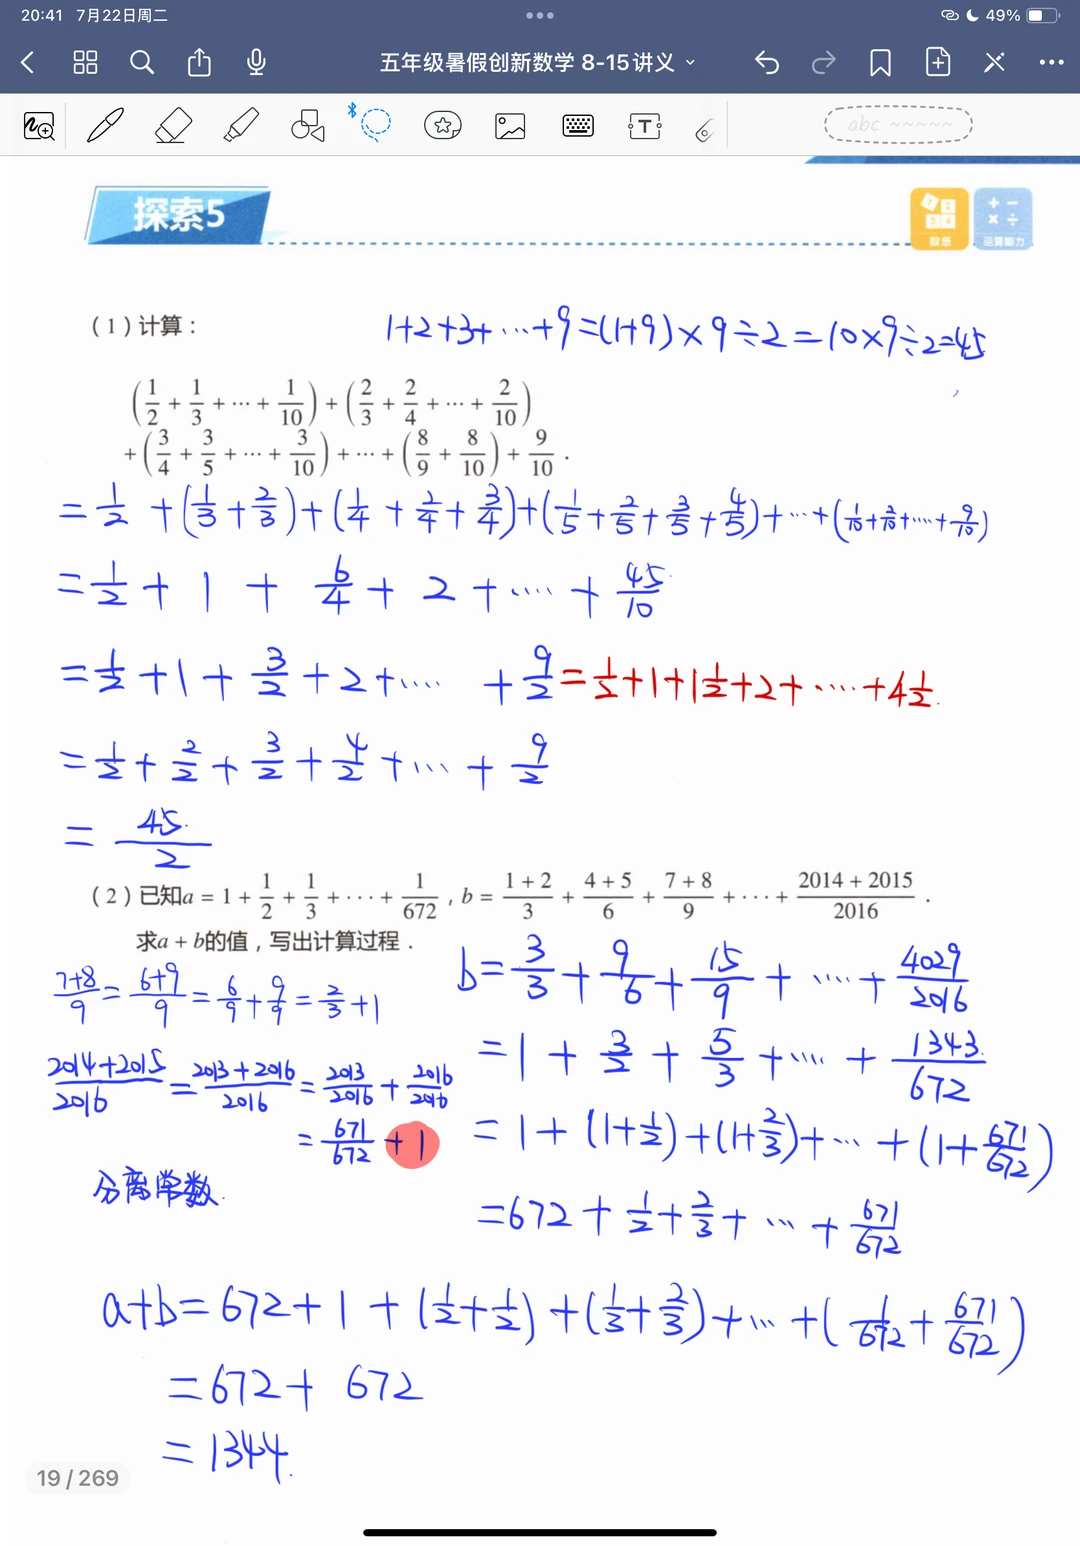 20:41 7月22日周二
49%
五年级暑假创新数学 8-15讲义
T
abc
探索5
数感
运算能力
(1)计算:
1+2+3+⋯+9=(1+9)×9÷2=10×9÷2=45
(1/2+1/3+⋯+1/10)+(2/3+2/4+⋯+2/10)
+(3/4+3/5+⋯+3/10)+⋯+(8/9+8/10)+9/10.
=1/2+(1/3+2/3)+(1/4+2/4+3/4)+(1/5+2/5+3/5+4/5)+⋯+(1/10+2/10+⋯+9/10)
=1/2+1+6/4+2+⋯+45/10
=1/2+1+3/2+2+⋯+9/2=1/2+1+1 1/2+2+⋯+4 1/2.
=1/2+2/2+3/2+4/2+⋯+9/2
=45/2
(2)已知a=1+1/2+1/3+⋯+1/672,b=(1+2)/3+(4+5)/6+(7+8)/9+⋯+(2014+2015)/2016.
求a+b的值,写出计算过程.
(7+8)/9=(6+9)/9=6/9+9/9=2/3+1
(2014+2015)/2016=(2013+2016)/2016=2013/2016+2016/2016
=671/672+1
分离常数.
b=3/3+9/6+15/9+⋯+4029/2016
=1+3/2+5/3+⋯+1343/672
=1+(1+1/2)+(1+2/3)+⋯+(1+671/672)
=672+1/2+2/3+⋯+671/672
a+b=672+1+(1/2+1/2)+(1/3+2/3)+⋯+(1/672+671/672)
=672+672
=1344.
19/269